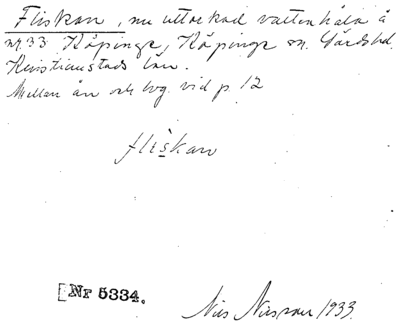 Fliskan, nu uttorkad vattenhåla å
nr 33 Köpinge, Köpinge sn. Gärds hd.
Kristianstads län.
Mellan ån och lvg vid p. 12
fliskan
[Nr 5334.
Nils Nilsson 1933.